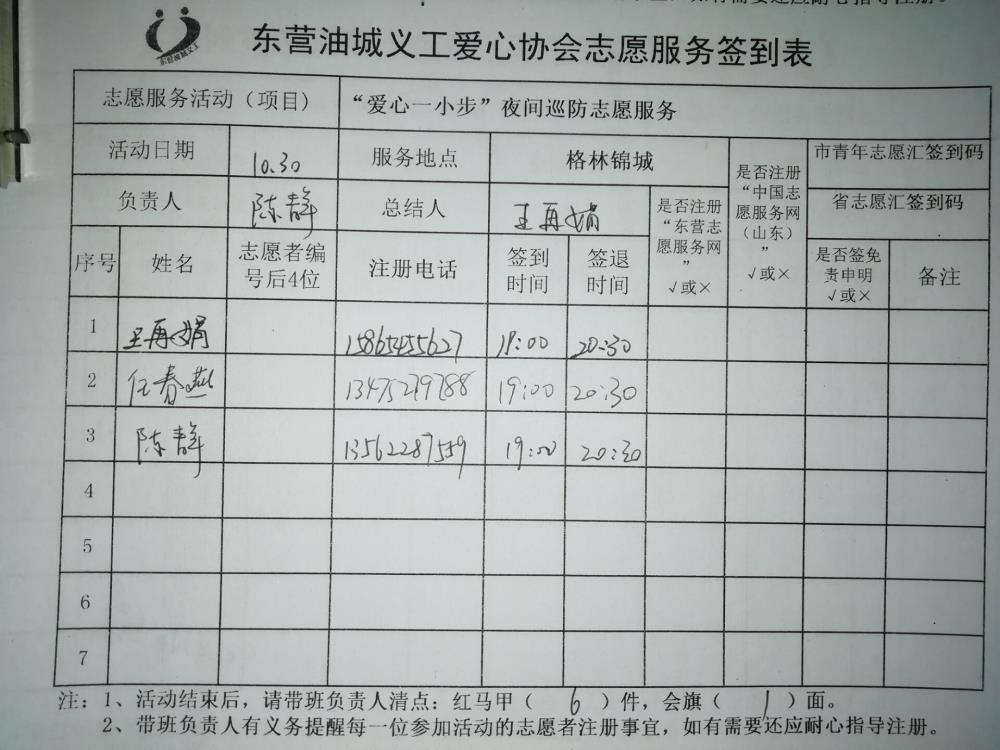 如有需要还应耐心指导注册。
东营油城义工
东营油城义工爱心协会志愿服务签到表
志愿服务活动（项目） “爱心一小步”夜间巡防志愿服务
活动日期 10.30 服务地点 格林锦城 是否注册“中国志愿服务网（山东）” √或× 市青年志愿汇签到码
负责人 陈静 总结人 王再娟 是否注册“东营志愿服务网” √或× 省志愿汇签到码
序号 姓名 志愿者编号后4位 注册电话 签到时间 签退时间 是否签免责申明 √或× 备注
1 王再娟 15865455627 19:00 20:30
2 任春燕 13475279788 19:00 20:30
3 陈静 13562287559 19:00 20:30
4
5
6
7
注：1、活动结束后，请带班负责人清点：红马甲（ 6 ）件，会旗（ 1 ）面。
2、带班负责人有义务提醒每一位参加活动的志愿者注册事宜，如有需要还应耐心指导注册。